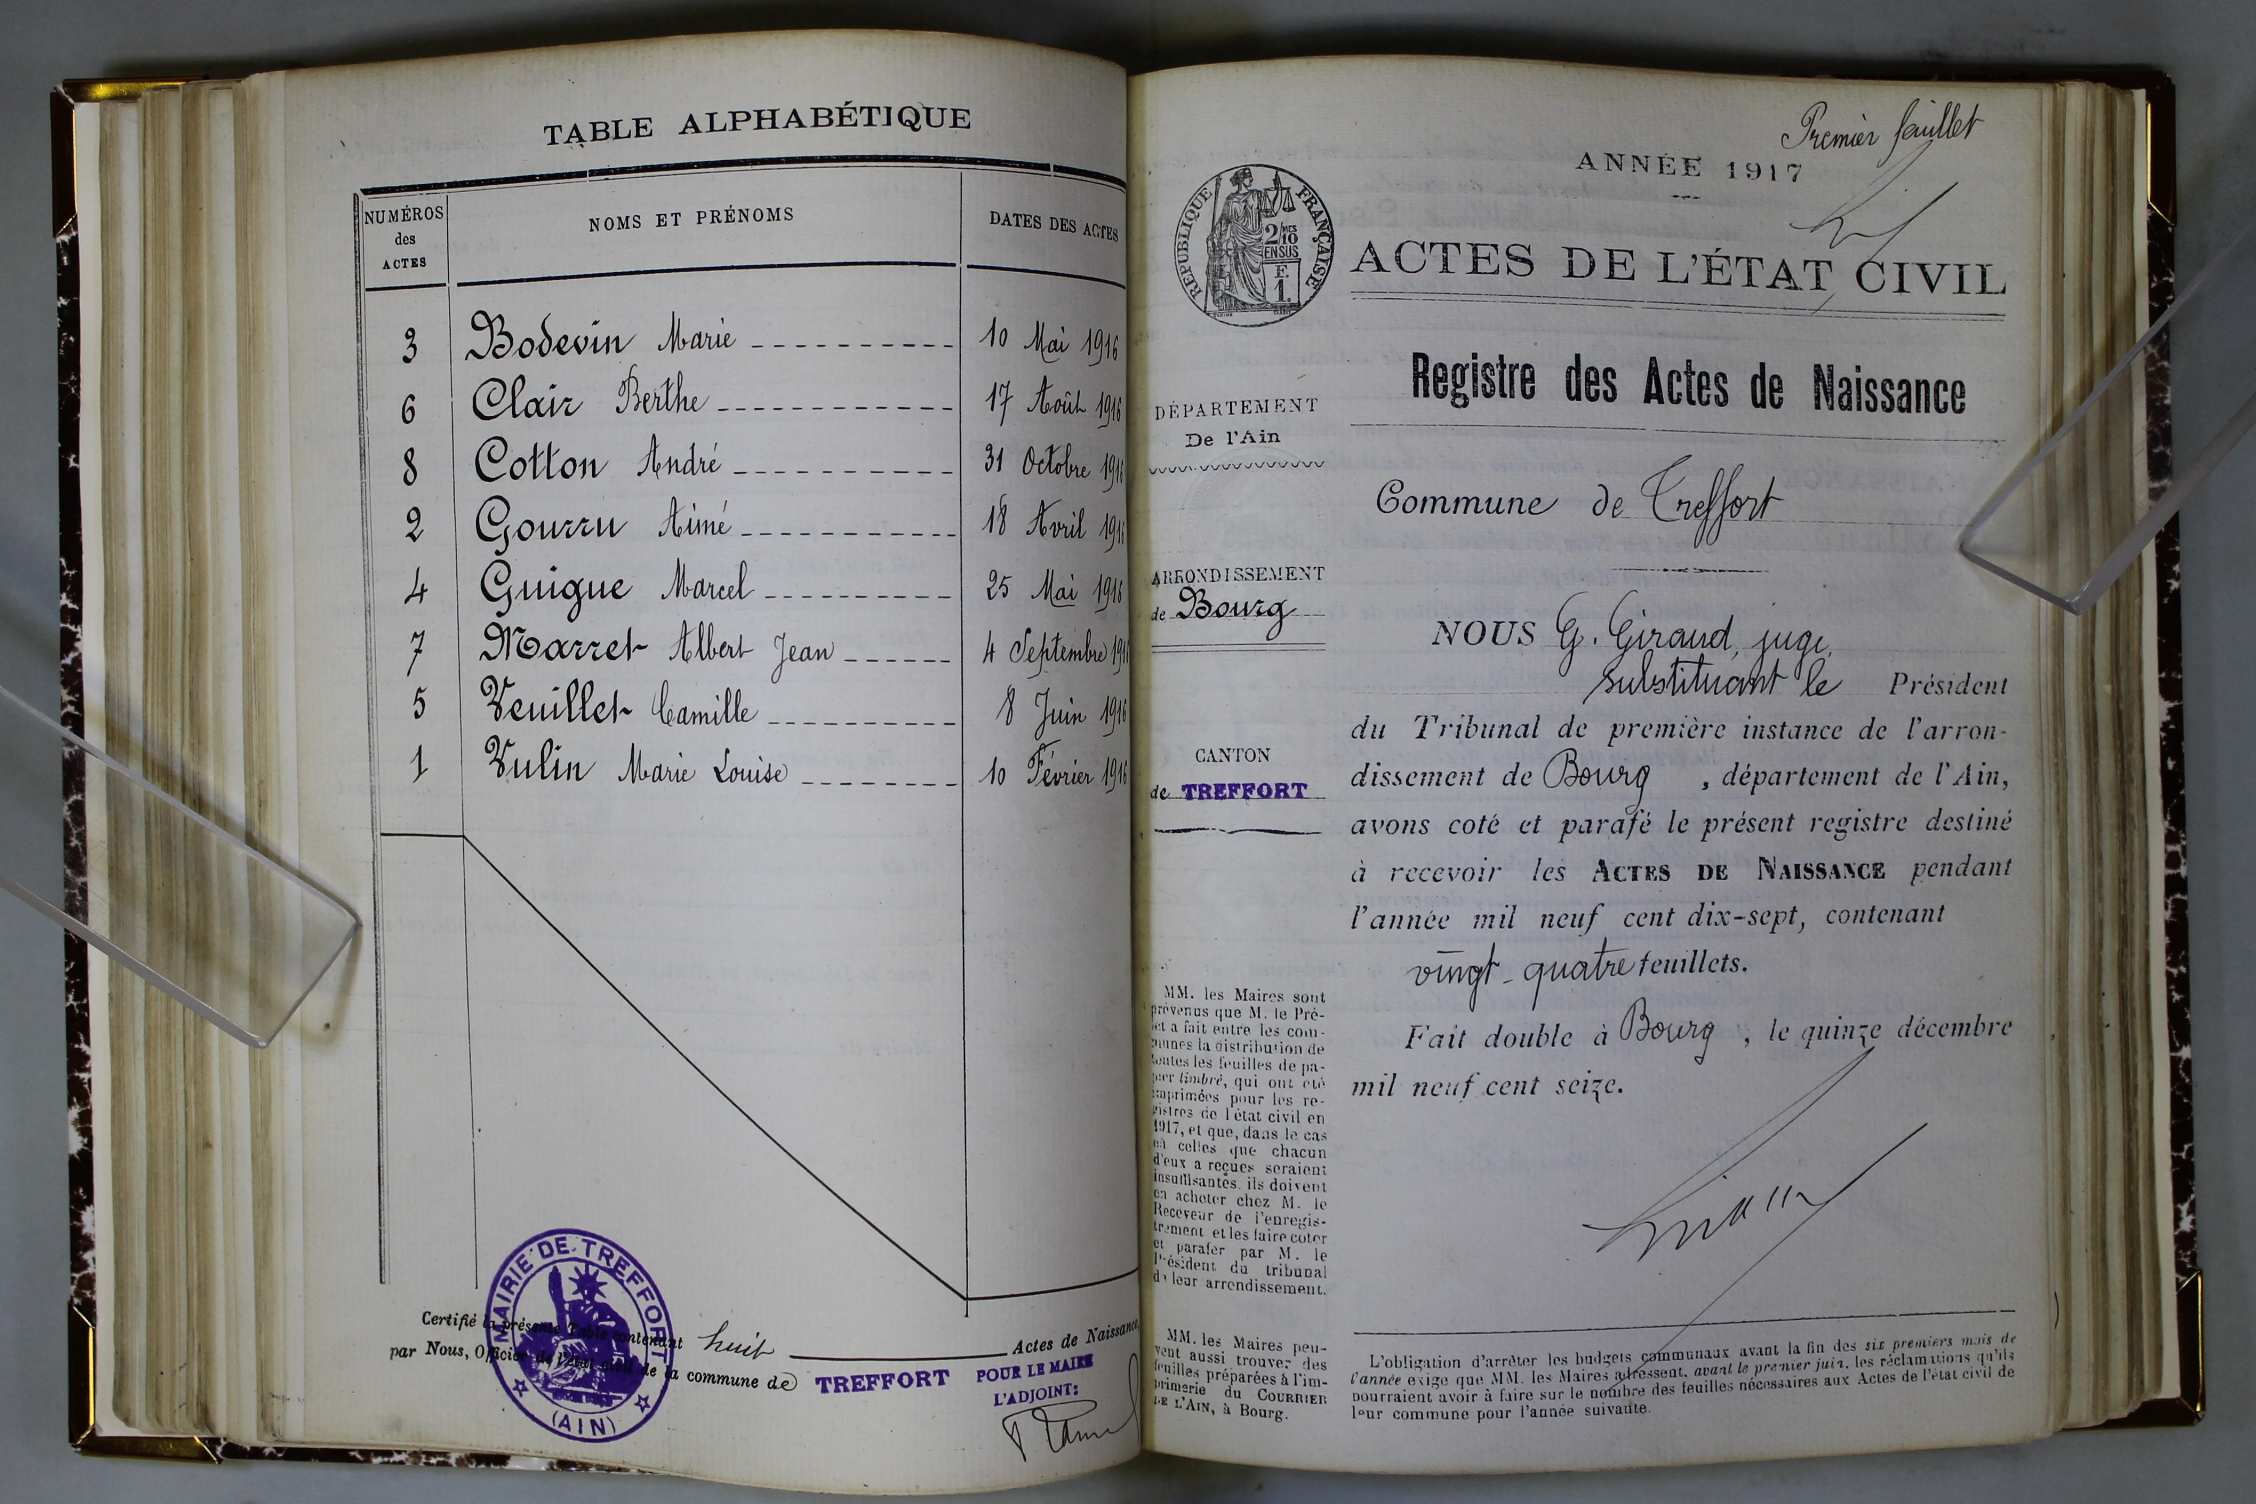 TABLE ALPHABÉTIQUE
NUMÉROS des ACTES
NOMS ET PRÉNOMS
DATES DES ACTES
3 Bodevin Marie 10 Mai 1916
6 Clair Berthe 17 Août 1916
8 Cotton André 31 Octobre 1916
2 Gourru Aimé 18 Avril 1916
4 Guigue Marcel 25 Mai 1916
7 Marret Albert Jean 4 Septembre 1916
5 Veuillet Camille 8 Juin 1916
1 Vulin Marie Louise 10 Février 1916
Certifié la présente Table contenant huit Actes de Naissance,
par Nous, Officier de l'état civil de la commune de TREFFORT
POUR LE MAIRE
L'ADJOINT:
MAIRIE DE TREFFORT
(AIN)
Premier feuillet
ANNÉE 1917
RÉPUBLIQUE FRANÇAISE
2/10 EN SUS
F. 1.
ACTES DE L'ÉTAT CIVIL
Registre des Actes de Naissance
DÉPARTEMENT
De l'Ain
ARRONDISSEMENT
de Bourg
CANTON
de TREFFORT
Commune de Treffort
NOUS G. Giraud, juge,
substituant le Président
du Tribunal de première instance de l'arron-
dissement de Bourg, département de l'Ain,
avons coté et parafé le présent registre destiné
à recevoir les ACTES DE NAISSANCE pendant
l'année mil neuf cent dix-sept, contenant
vingt-quatre feuillets.
Fait double à Bourg, le quinze décembre
mil neuf cent seize.
MM. les Maires sont
prévenus que M. le Pré-
fet a fait entre les com-
munes la distribution de
toutes les feuilles de pa-
pier timbré, qui ont été
imprimées pour les re-
gistres de l'état civil en
1917, et que, dans le cas
où celles que chacun
d'eux a reçues seraient
insuffisantes, ils doivent
en acheter chez M. le
Receveur de l'enregis-
trement et les faire coter
et parafer par M. le
Président du tribunal
de leur arrondissement.
MM. les Maires peu-
vent aussi trouver des
feuilles préparées à l'im-
primerie du COURRIER
DE L'AIN, à Bourg.
L'obligation d'arrêter les budgets communaux avant la fin des six premiers mois de
l'année exige que MM. les Maires adressent, avant le premier juin, les réclamations qu'ils
pourraient avoir à faire sur le nombre des feuilles nécessaires aux Actes de l'état civil de
leur commune pour l'année suivante.